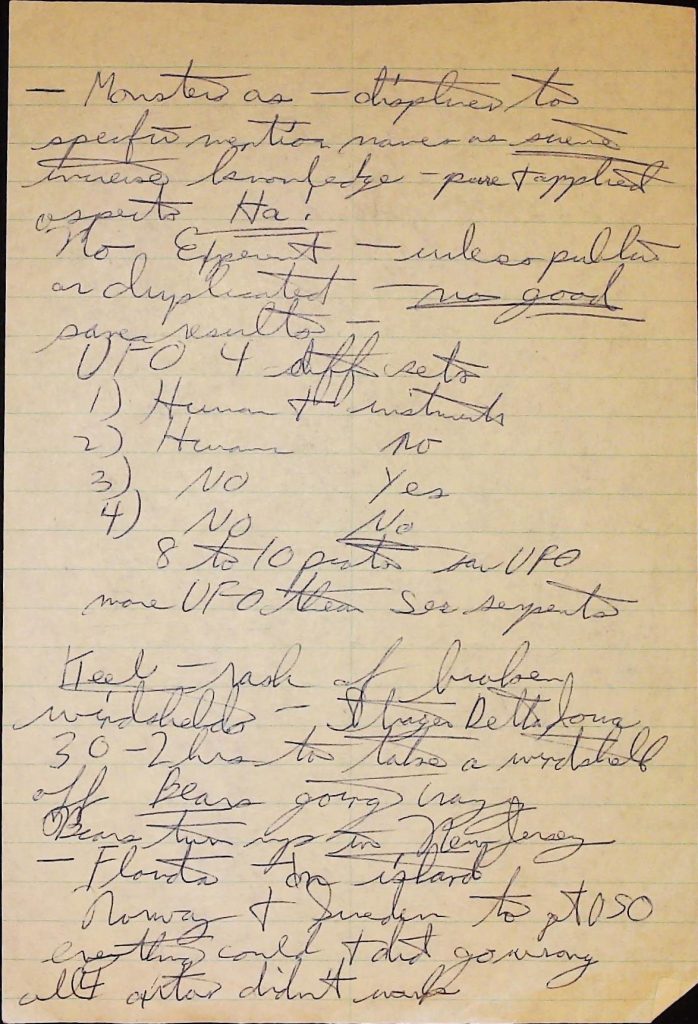 — Monsters as —
specific mention names as science
increase knowledge - pure + applied
aspects Ha!
No Experment - unless public
or duplicated - no good
same results -
UFO 4 diff sets
1) Human + instments
2) Human no
3) NO Yes
4) NO No
8 to 10 saw UFO
more UFO then Sea serpents
Keel - rash of broken
windshelds -
30 - 2 hrs to take a windshelb
off Bears going crazy
Bears turn up in New Jersey
- Florida on island
Norway + Sweden to get USO
everything could + did go wrong
didn't work